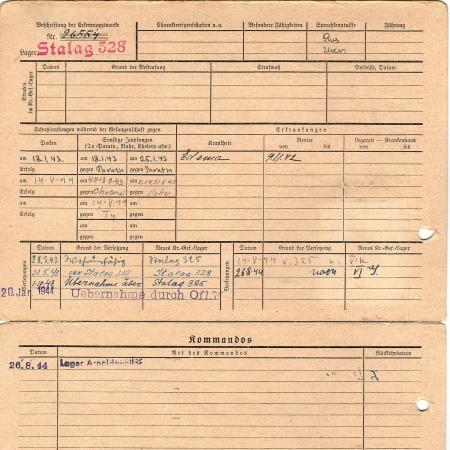 Beschriftung der Erkennungsmarke
Nr. 26554
Lager Stalag 328
Charaktereigenschaften u. a.
Besondere Fähigkeiten
Sprachkenntnisse
Führung
Rus
Strafen im Kr.-Gef.-Lager
Datum
Grund der Bestrafung
Strafmaß
Verbüßt, Datum
Schutzimpfungen während der Gefangenschaft gegen
Erkrankungen
Pocken
Sonstige Impfungen
(Ty.-Paraty., Ruhr, Cholera usw.)
Krankheit
Revier
von
bis
Lazarett — Krankenhaus
von
bis
am 18.1.43. am 18.1.43 am 25.1.43
Erfolg gegen Paraty. gegen Paraty.
am 14-8-44 am
Erfolg gegen Cholera gegen Ruhr
am am 14-8-44 am
Erfolg gegen Ty. gegen
am am am
Erfolg gegen gegen
Edema
Versetzungen
Datum
Grund der Versetzung
Neues Kr.-Gef.-Lager
Datum
Grund der Versetzung
Neues Kr.-Gef.-Lager
28.5.43
Stalag 325
31.5.43 von Stalag 310 Stalag 328
Übernahme über Stalag 325
14-8-44 v. 325
26.8.44 nach VI
20. Jan. 1944 Uebernahme durch Ofl.
Kommandos
Datum
Art des Kommandos
Rückkehrdatum
26.8.44 Lager